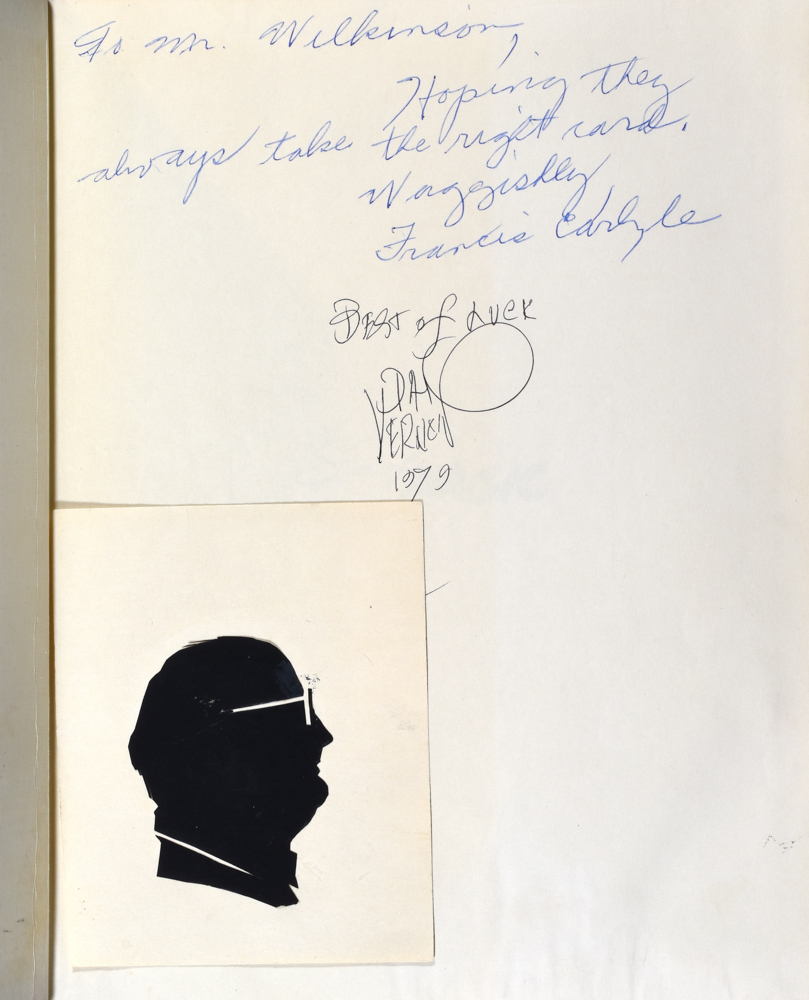 To Mr. Wilkinson,
Hoping they
always take the right card.
Waggishly,
Francis Carlyle
Best of Luck
DAI
VERNON
1979